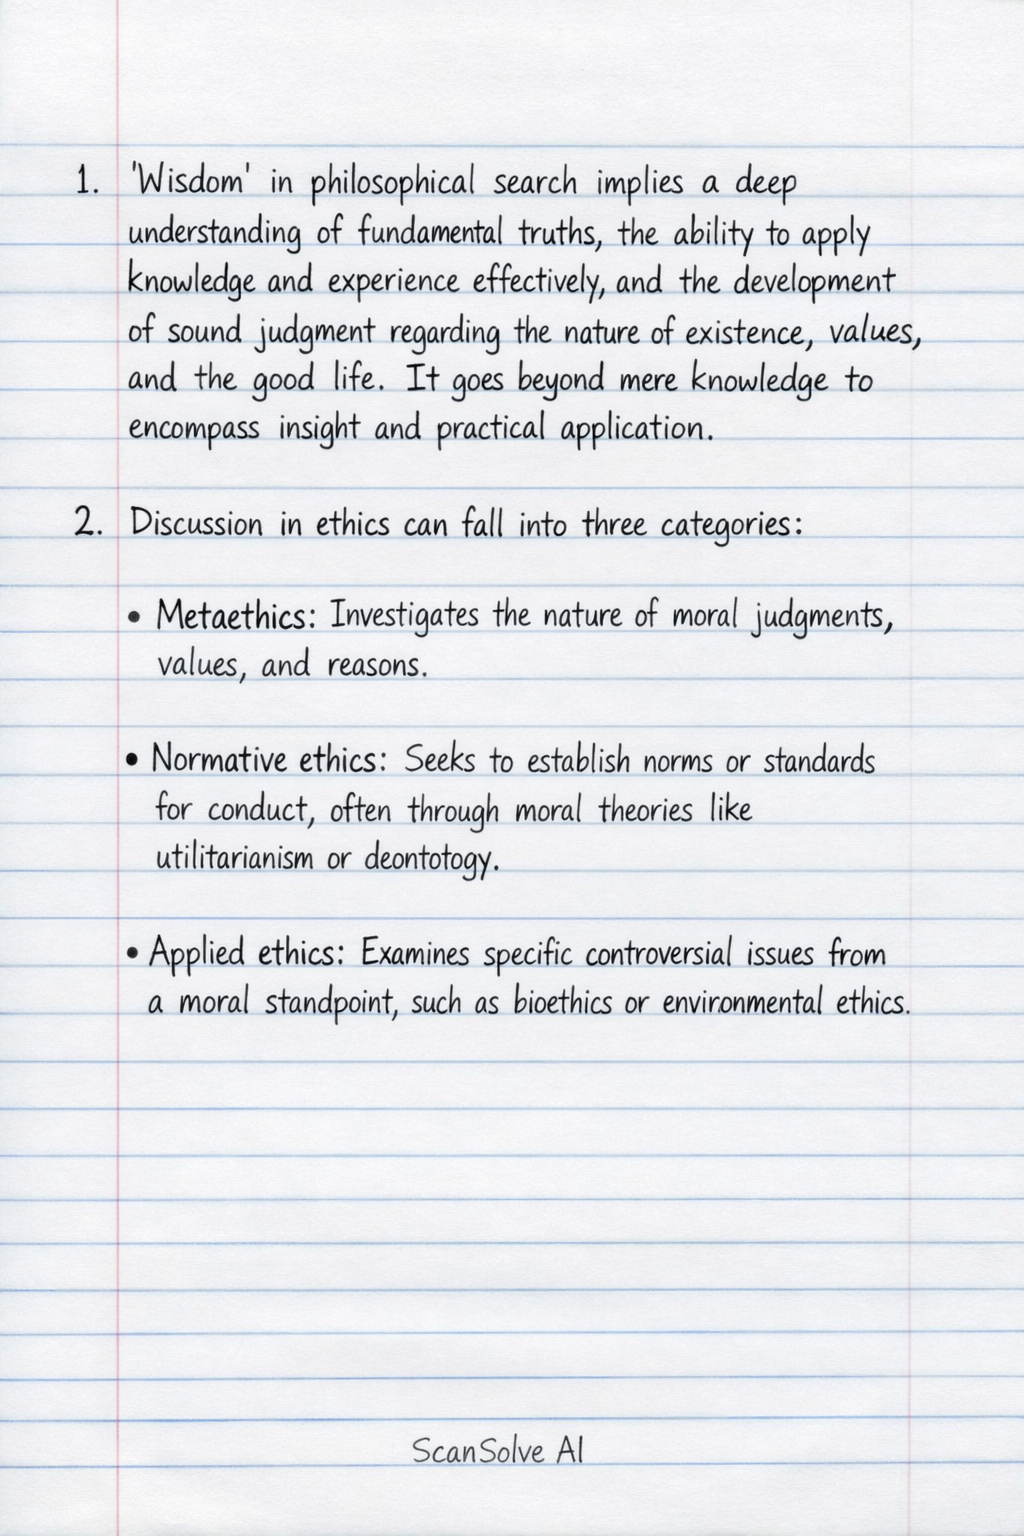 1. 'Wisdom' in philosophical search implies a deep
understanding of fundamental truths, the ability to apply
knowledge and experience effectively, and the development
of sound judgment regarding the nature of existence, values,
and the good life. It goes beyond mere knowledge to
encompass insight and practical application.
2. Discussion in ethics can fall into three categories:
• Metaethics: Investigates the nature of moral judgments,
values, and reasons.
• Normative ethics: Seeks to establish norms or standards
for conduct, often through moral theories like
utilitarianism or deontotogy.
• Applied ethics: Examines specific controversial issues from
a moral standpoint, such as bioethics or environmental ethics.
ScanSolve AI